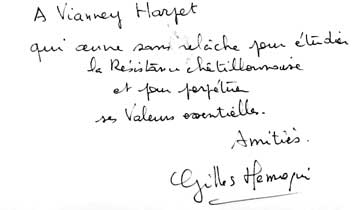 A Vianney Harpet
qui œuvre sans relâche pour étudier
la Résistance châtillonnaise
et pour perpétuer
ses Valeurs essentielles.
Amitiés.
Gilles